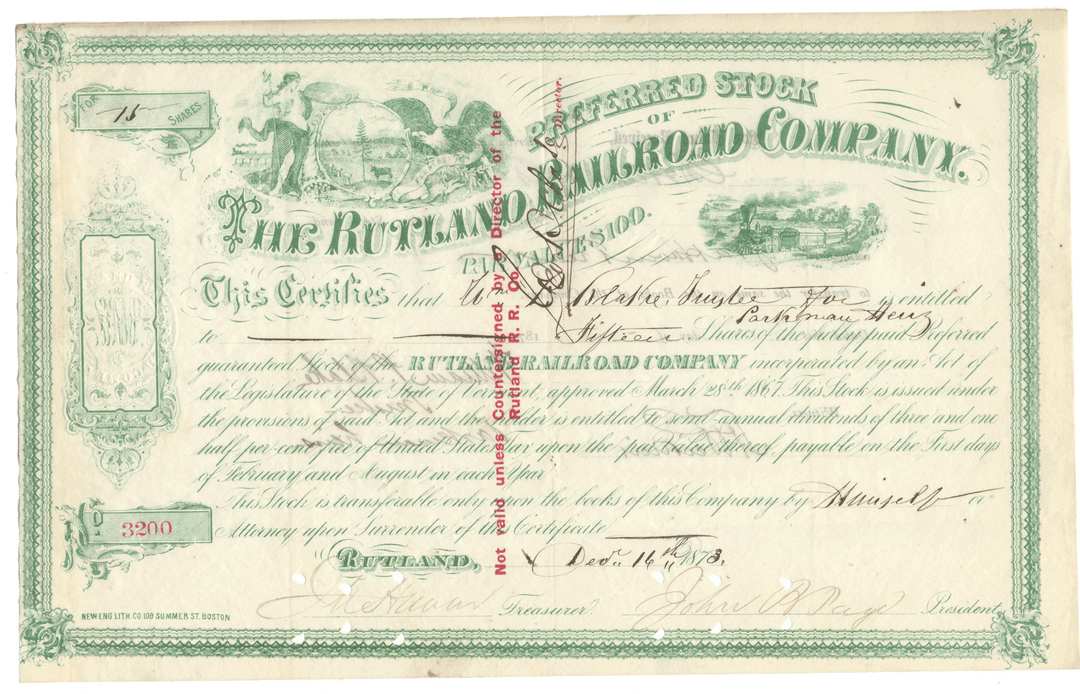 FOR 15 SHARES
PREFERRED STOCK
OF
THE RUTLAND RAILROAD COMPANY.
PAR VALUE $100.
This Certifies that Wm Blake Trustee for is entitled
Parkman
to Fifteen Shares of the fully paid Preferred
guaranteed Stock of the RUTLAND RAILROAD COMPANY incorporated by an Act of
the Legislature of the State of Vermont, approved March 28th 1867. This Stock is issued under
the provisions of said Act and the holder is entitled to semi-annual dividends of three and one
half per-cent free of United States Tax upon the par value thereof, payable on the First days
of February and August in each Year
This Stock is transferable only upon the books of this Company by Himself or
Attorney upon Surrender of this Certificate
No 3200
RUTLAND, Dec. 16th 1873.
Treasurer. John B Page President
NEW ENG LITH. CO 109 SUMMER ST. BOSTON
Not valid unless Countersigned by a Director of the
Rutland R. R. Co.
Director.
$100